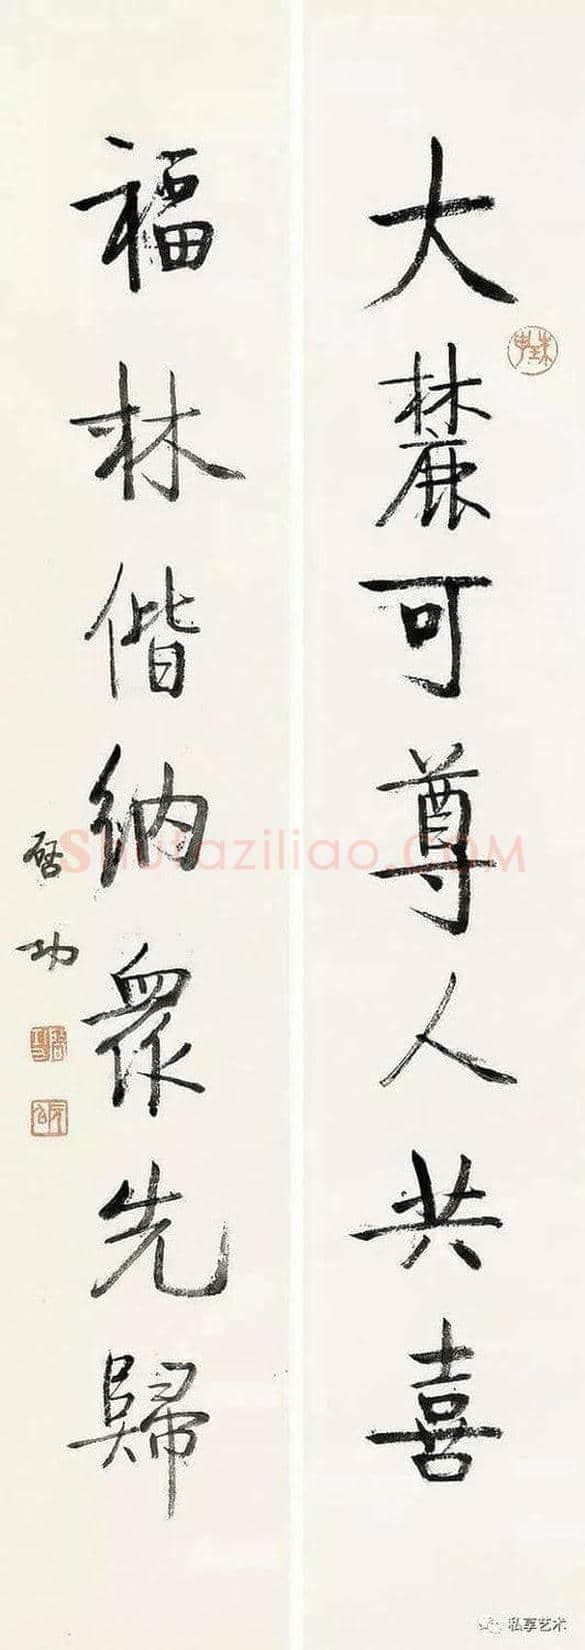 大麓可尊人共喜
福林偕納眾先歸
啓功
Shufaziliao.COM
私享艺术